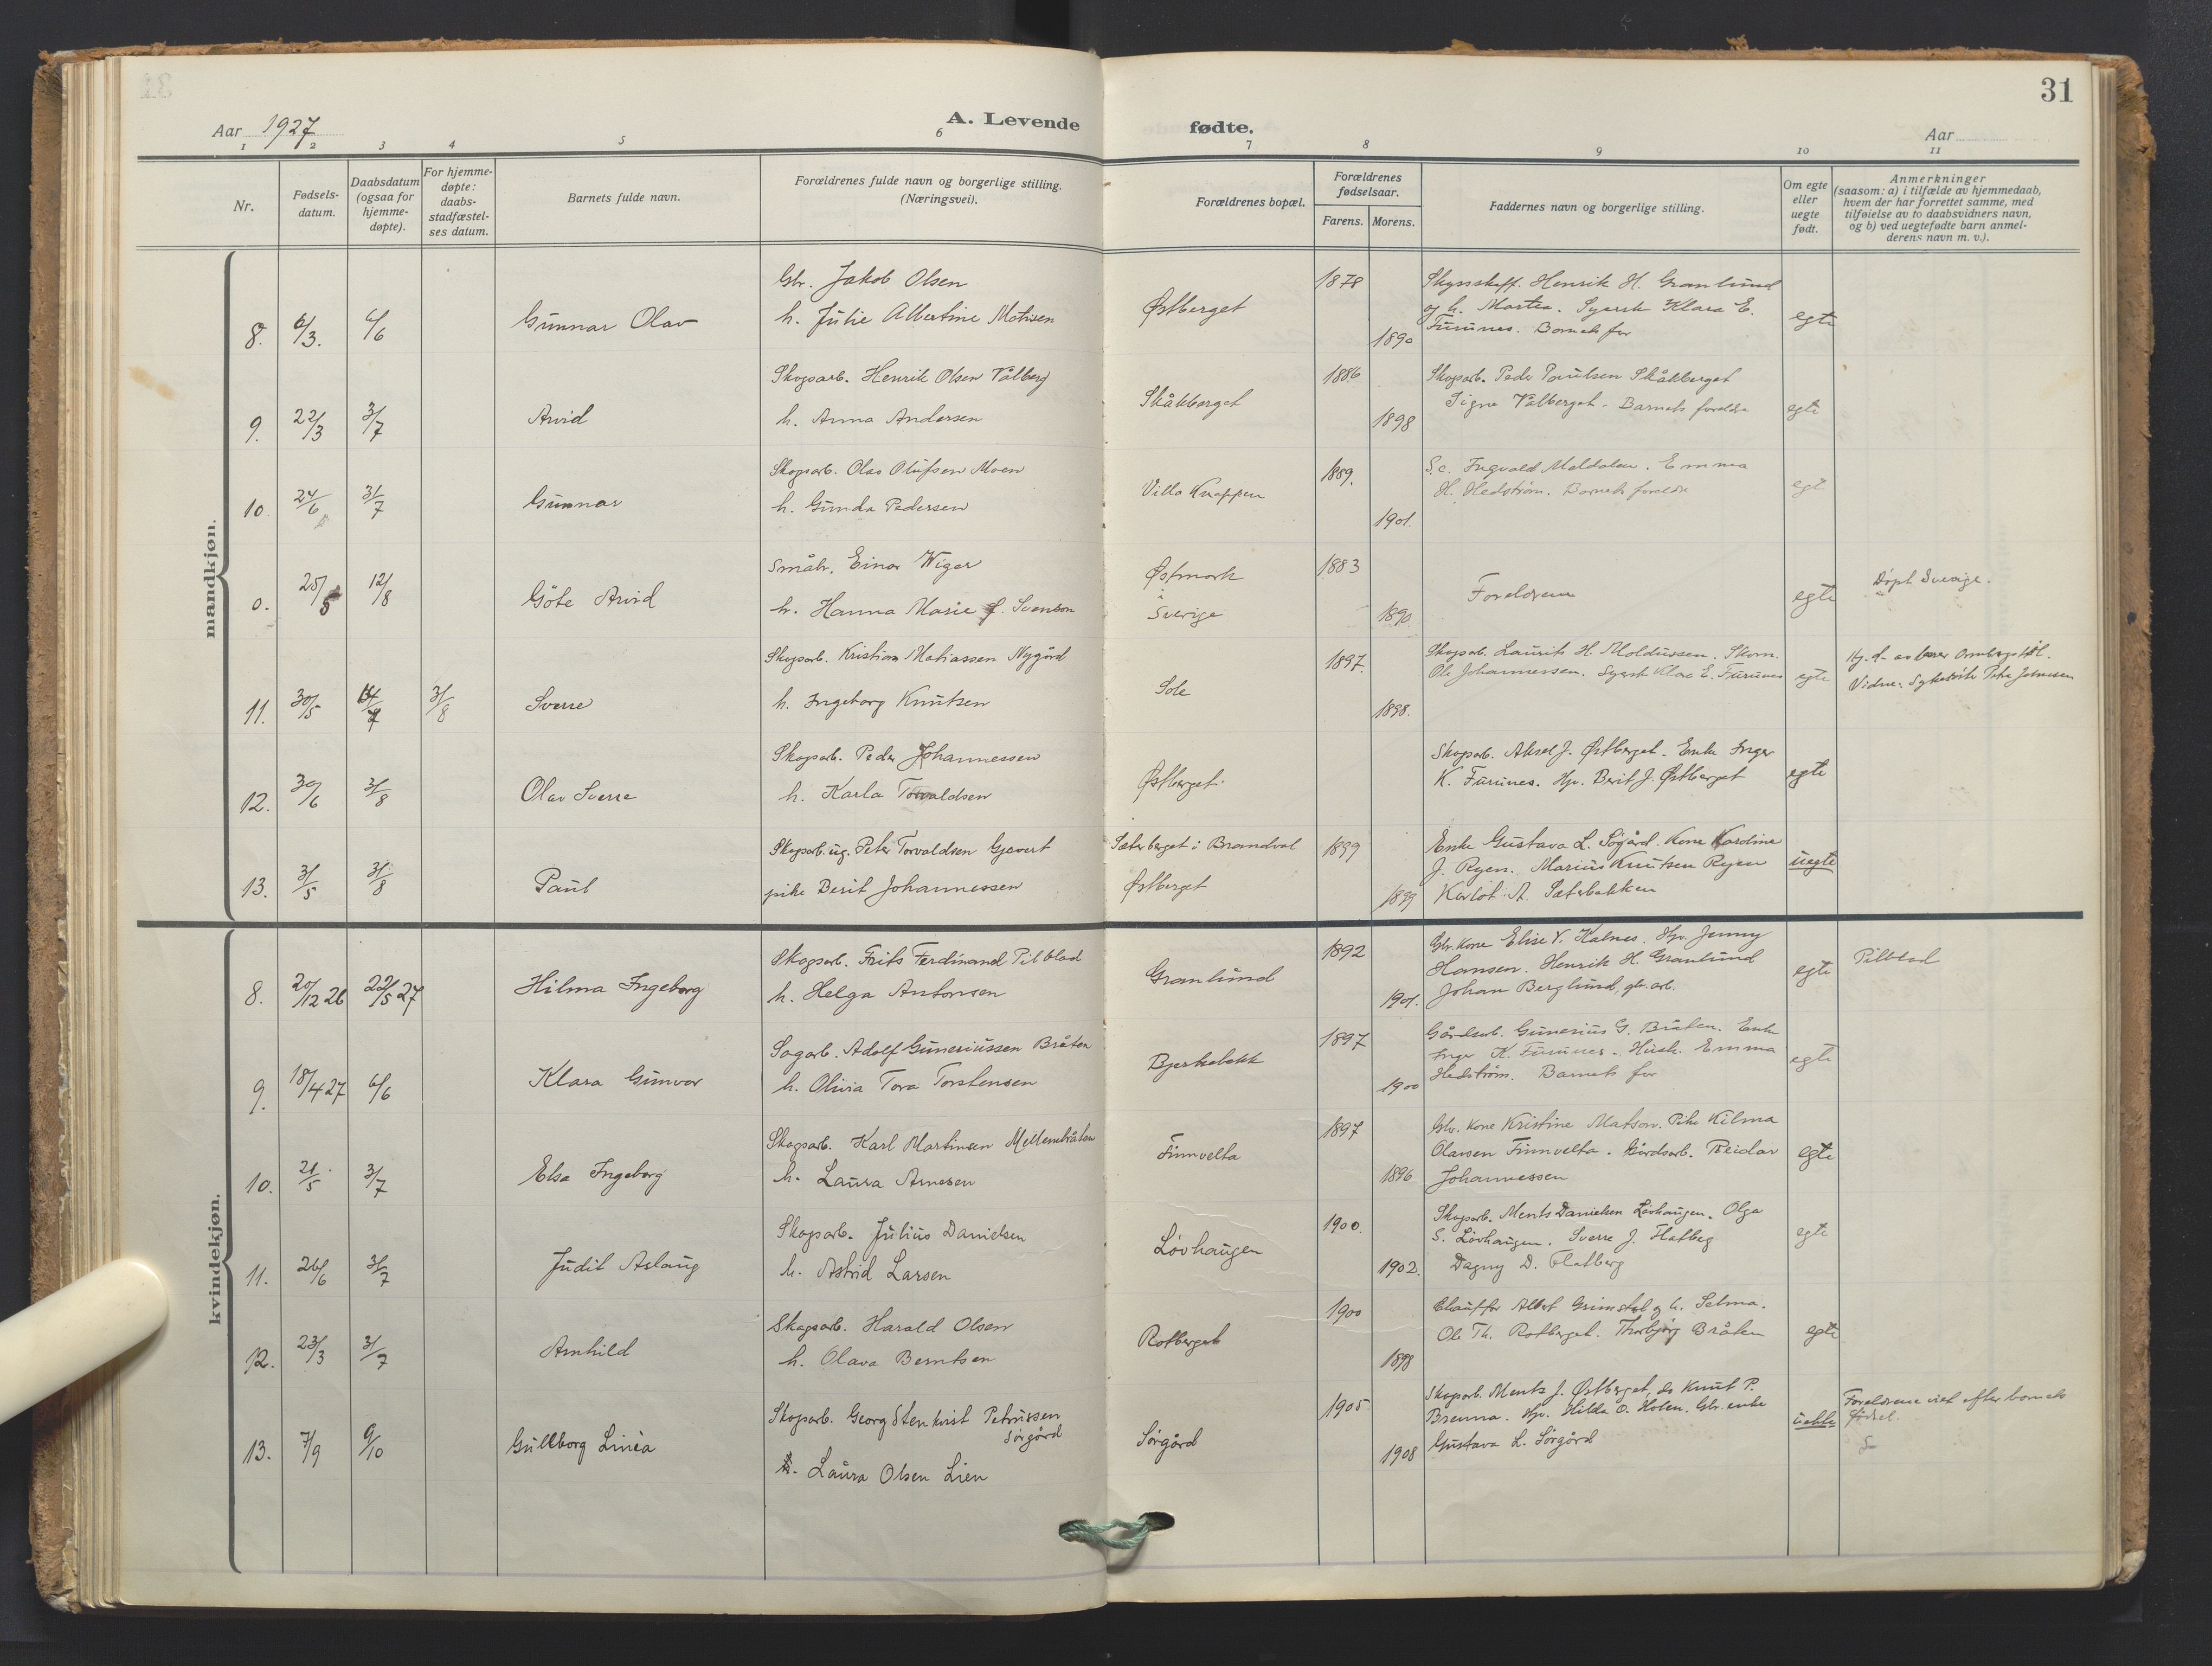 31
Aar 1927
A. Levende fødte.
Aar
1 2 3 4 5 6 7 8 9 10 11
Nr.
Fødsels-
datum.
Daabsdatum
(ogsaa for
hjemme-
døpte).
For hjemme-
døpte:
daabs-
stadfæstel-
ses datum.
Barnets fulde navn.
Forældrenes fulde navn og borgerlige stilling.
(Næringsvei).
Forældrenes bopæl.
Forældrenes
fødselsaar.
Farens. Morens.
Faddernes navn og borgerlige stilling.
Om egte
eller
uegte
født.
Anmerkninger
(saasom: a) i tilfælde av hjemmedaab,
hvem der har forrettet samme, med
tilføielse av to daabsvidners navn,
og b) ved uegtefødte barn anmel-
derens navn m. v.).
mandkjøn.
8. 6/3. 6/6 Gunnar Olav
Gbr. Jakob Olsen
h. Julie Albertine Matisen
Østberget
1878
1890
Skysskaff. Henrik H. Granlund
og h. Martea. Syersk Klara E.
Furunes. Barnets far
egte
9. 22/3 3/7 Arvid
Skogsarb. Henrik Olsen Vålberg
h. Anna Andersen
Skåkberget
1886
1898
Skogsarb. Peder Paulsen Skåkberget
Signe Vålberget. Barnets foreldre
egte
10 24/6 31/7 Gunnar
Skogsarb. Olav Olufsen Moen
h. Gunda Pedersen
Villa Knappen
1889.
1901.
S.c. Ingvald Meldalen. Emma
H. Hedström. Barnets foreldre
egte
0. 25/5 12/8 Göte Arvid
Småbr. Einar Wiger
h. Hanna Marie f. Svenson
Østmark
i
Sverige
1883
1890.
Foreldrene
egte
Døpt i Sverige.
11. 30/5 31/8 Sverre
Skogsarb. Kristian Matiassen Nygård
h. Ingeborg Knutsen
Sole
1897.
1898.
Skogsarb. Laurits H. Moldussen. Skom.
Ole Johannessen. Syersk Klara E. Furunes
egte
12. 30/6 31/8 Olav Sverre
Skogsarb. Peder Johannessen
h. Karla Torvaldsen
Østberget.
Skogsarb. Aksel J. Østberget. Enke Inger
K. Furunes. Hp. Berit J. Østberget
egte
13. 31/5 31/8 Paul
Skogsarb. ug. Peter Torvaldsen Gjevert
pike Berit Johannessen
Sæterberget i Brandval
Østberget
1899
1899
Enke Gustava L. Sögård. Kone Karoline
J. Ryen. Marius Knutsen Ryen
A. Sæterbakken
uegte
kvindekjøn.
8. 20/12 26 22/5 27 Hilma Ingeborg
Skogsarb. Frits Ferdinand Pilblad
h. Helga Antonsen
Granlund
1892
1901.
Gbr. kone Elise V. Kalnes. Hp. Jenny
Hansen. Henrik H. Granlund
Johan Berglund, gbr. arb.
egte
Pilblad
9. 18/4 27 6/6 Klara Gunvor
Sagarb. Adolf Guneriussen Bråten
h. Olivia Tora Torstensen
Bjerkebekk
1897
1900
Gårdsarb. Gunerius G. Bråten. Enke
Inger K. Furunes. Hush. Emma
Hedström. Barnets far
egte
10. 21/5 3/7 Elsa Ingeborg
Skogsarb. Karl Martinsen Mellembråten
h. Laura Arnesen
Finnvelta
1897
1896
Gbr. kone Kristine Matson. Pike Hilma
Olavsen Finnvelta. Gårdsarb. Reidar
Johannessen
egte
11. 26/6 31/7 Judit Aslaug
Skogsarb. Julius Danielsen
h. Astrid Larsen
Lövhaugen
1900.
1902.
Skogsarb. Ments Danielsen Lövhaugen. Olga
S. Lövhaugen. Sverre J. Flatberg
Dagny D. Flatberg
egte
12. 23/3 31/7 Arnhild
Skogsarb. Harald Olsen
h. Olava Berntsen
Rotberget
1900
1898
Chauffør Albert Grimstol og h. Selma.
Ole Th. Rotberget. Thorbjørg Bråten
egte
13. 7/9 9/10 Gullborg Linéa
Skogsarb. Georg Stenkvist Petrussen
Sørgård
h. Laura Olsen Lien
Sørgård
1905
1908
Skogsarb. Ments J. Østberget, do Knut P.
Brenna. Hp. Hilda O. Holen. Gbr. enke
Gustava L. Sørgård
uekte
Foreldrene viet efter barnets
fødsel.